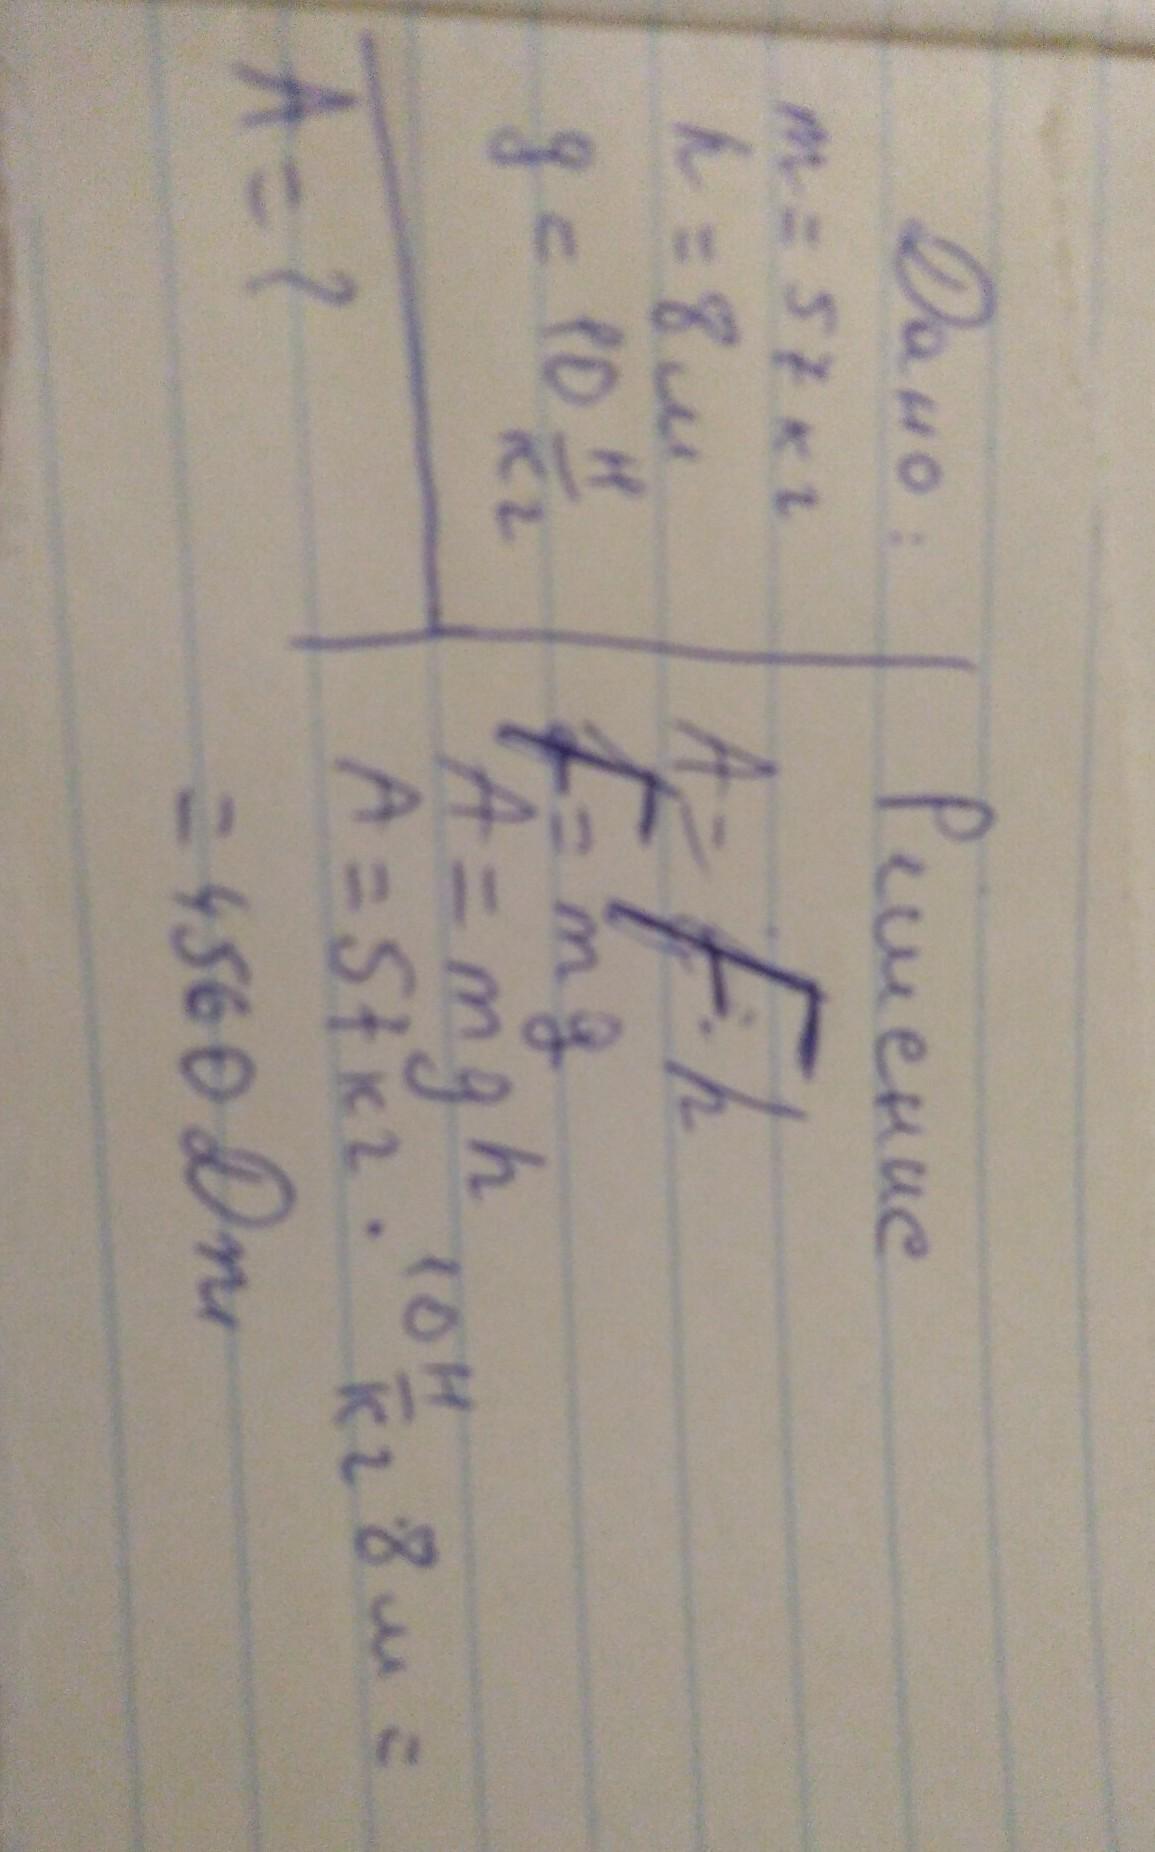 Дано:
m = 57 кг
h = 8 м
g = 10 Н/кг
A = ?
Решение
A = F · h
F = mg
A = mgh
A = 57 кг · 10 Н/кг · 8 м =
= 4560 Дж